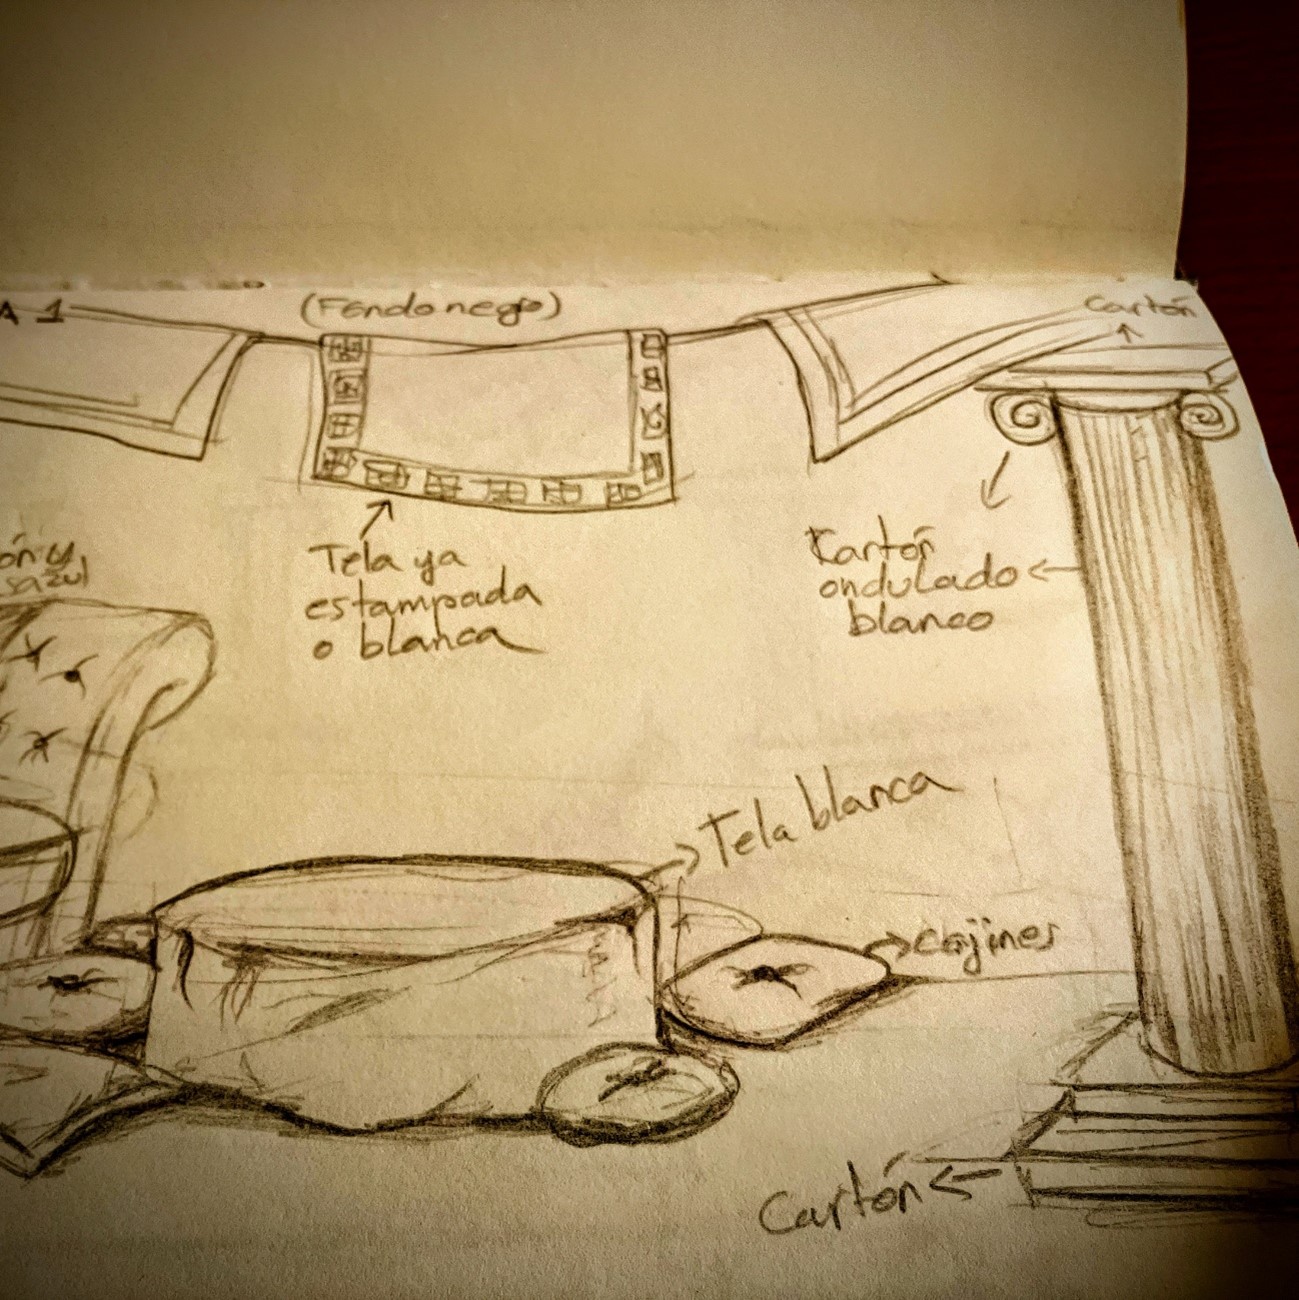 A 1
(Fondo negro)
Cartón
Tela ya
estampada
o blanca
Kartón
ondulado
blanco
ón y
s azul
Tela blanca
cojines
Cartón